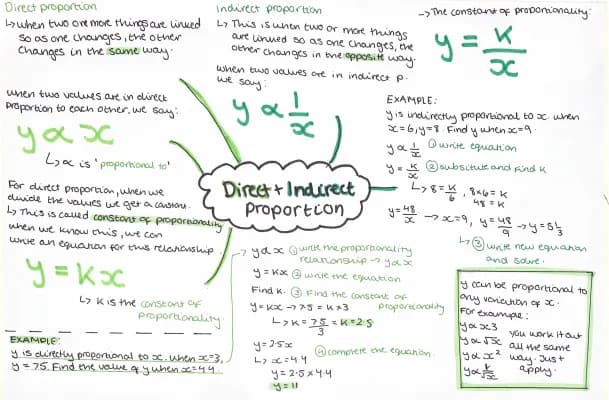 Direct proportion
↳ when two or more things are linked
so as one changes, the other
changes in the same way.
when two values are in direct
proportion to each other, we say:
y ∝ x
↳ ∝ is 'proportional to'
For direct proportion, when we
divide the values we get a constant.
↳ This is called constant of proportionality
when we know this, we can
write an equation for this relationship.
y = kx
↳ k is the constant of
proportionality.
EXAMPLE:
y is directly proportional to x. when x=3,
y = 7.5. Find the value of y when x=4.4
Indirect proportion
↳ This is when two or more things
are linked so as one changes, the
other changes in the opposite way.
when two values are in indirect p.
we say:
y ∝ 1/x
Direct + Indirect
Proportion
→ y ∝ x ① write the proportionality
relationship → y ∝ x
y = kx ② write the equation
Find k. ③ Find the constant of
proportionality
y = kx → 7.5 = k x 3
↳ k = 7.5/3 = k = 2.5
y = 2.5x ④ complete the equation.
↳ x = 4.4
y = 2.5 x 4.4
y = 11
→ The constant of proportionality:
y = k/x
EXAMPLE:
y is indirectly proportional to x. when
x=6, y=8. Find y when x=9.
y ∝ 1/x ① write equation
y = k/x ② subsitute and find k
↳ 8 = k/6, 8x6 = k
48 = k
y = 48/x → x=9, y = 48/9 → y = 5 1/3
↳ ③ write new equation
and solve.
y can be proportional to
any variation of x.
For example:
y ∝ x3
y ∝ √x
y ∝ x²
y ∝ 1/√x
you work it out
all the same
way. Just
apply.